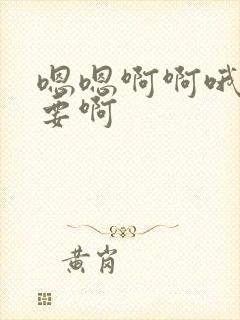 嗯嗯啊啊哦
要啊
黄岗